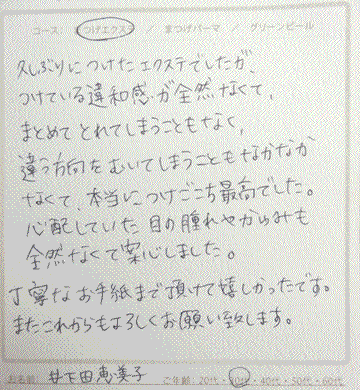 コース: まつげエクステ ／ まつげパーマ ／ グリーンピール
久しぶりにつけたエクステでしたが、
つけている違和感が全然なくて、
まとめてとれてしまうこともなく、
違う方向をむいてしまうこともなかなか
なくて、本当につけごこち最高でした。
心配していた目の腫れやかゆみも
全然なくて安心しました。
丁寧なお手紙まで頂けて嬉しかったです。
またこれからもよろしくお願い致します。
お名前: 井下田恵美子 ご年齢: 20代・30代・40代・50代・60代